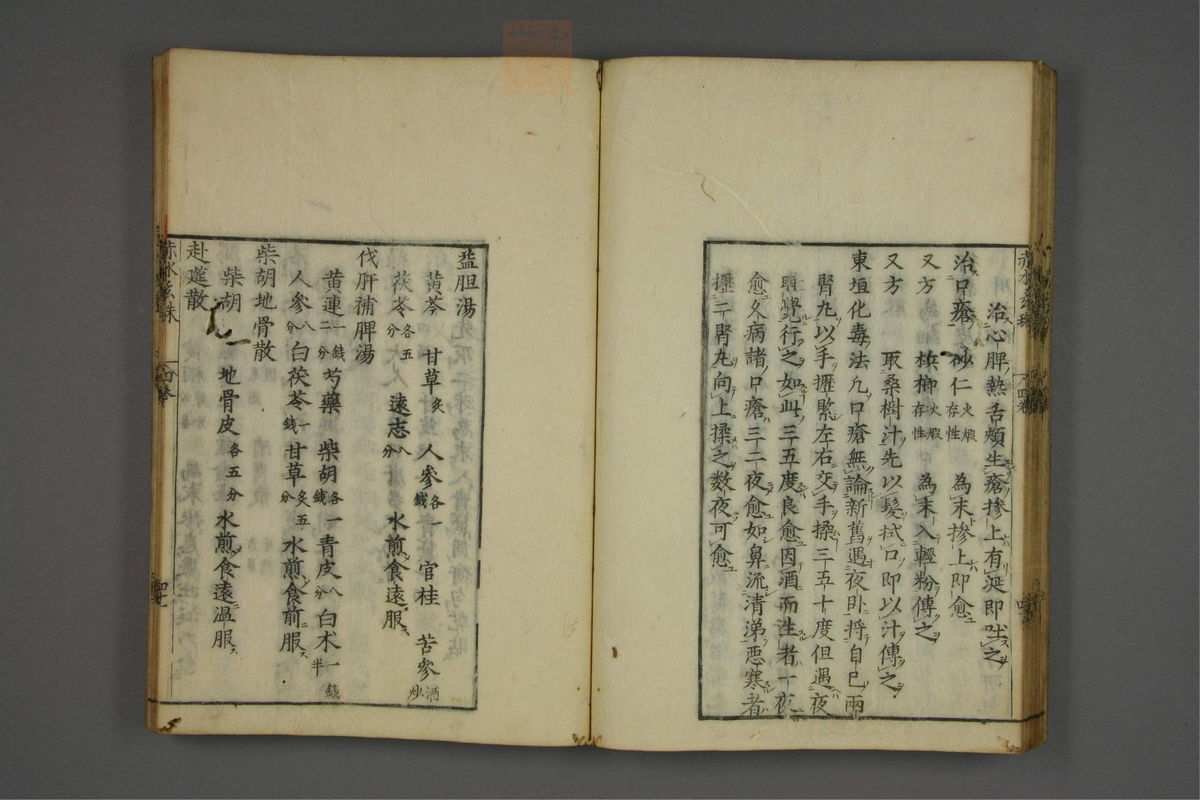 治心脾熱舌頰生瘡摻上有涎即吐之
治口瘡 砂仁火煅存性 為末摻上即愈
又方 梹榔火煅存性 為末入輕粉傅之
又方 取桑樹汁先以髮拭口即以汁傅之
東垣化毒法凢口瘡無論新舊遇夜卧將自己兩
腎丸以手攊緊左右交手揉三五十度但遇夜
睡覺行之如此三五度良愈因酒而生者一夜
愈久病諸口瘡三二夜愈如鼻流清涕惡寒者
攊二腎丸向上揉之数夜可愈
益胆湯
黃芩 甘草炙 人參各一錢 官桂 苦參酒炒
茯苓各五分 遠志八分 水煎食遠服
伐肝補脾湯
黃連一錢二分 芍藥 柴胡各一錢 青皮八分 白朮一錢半
人參八分 白茯苓一錢 甘草炙五分 水煎食前服
柴胡地骨散
柴胡 地骨皮各五分 水煎食遠温服
赴筵散
赤水玄珠